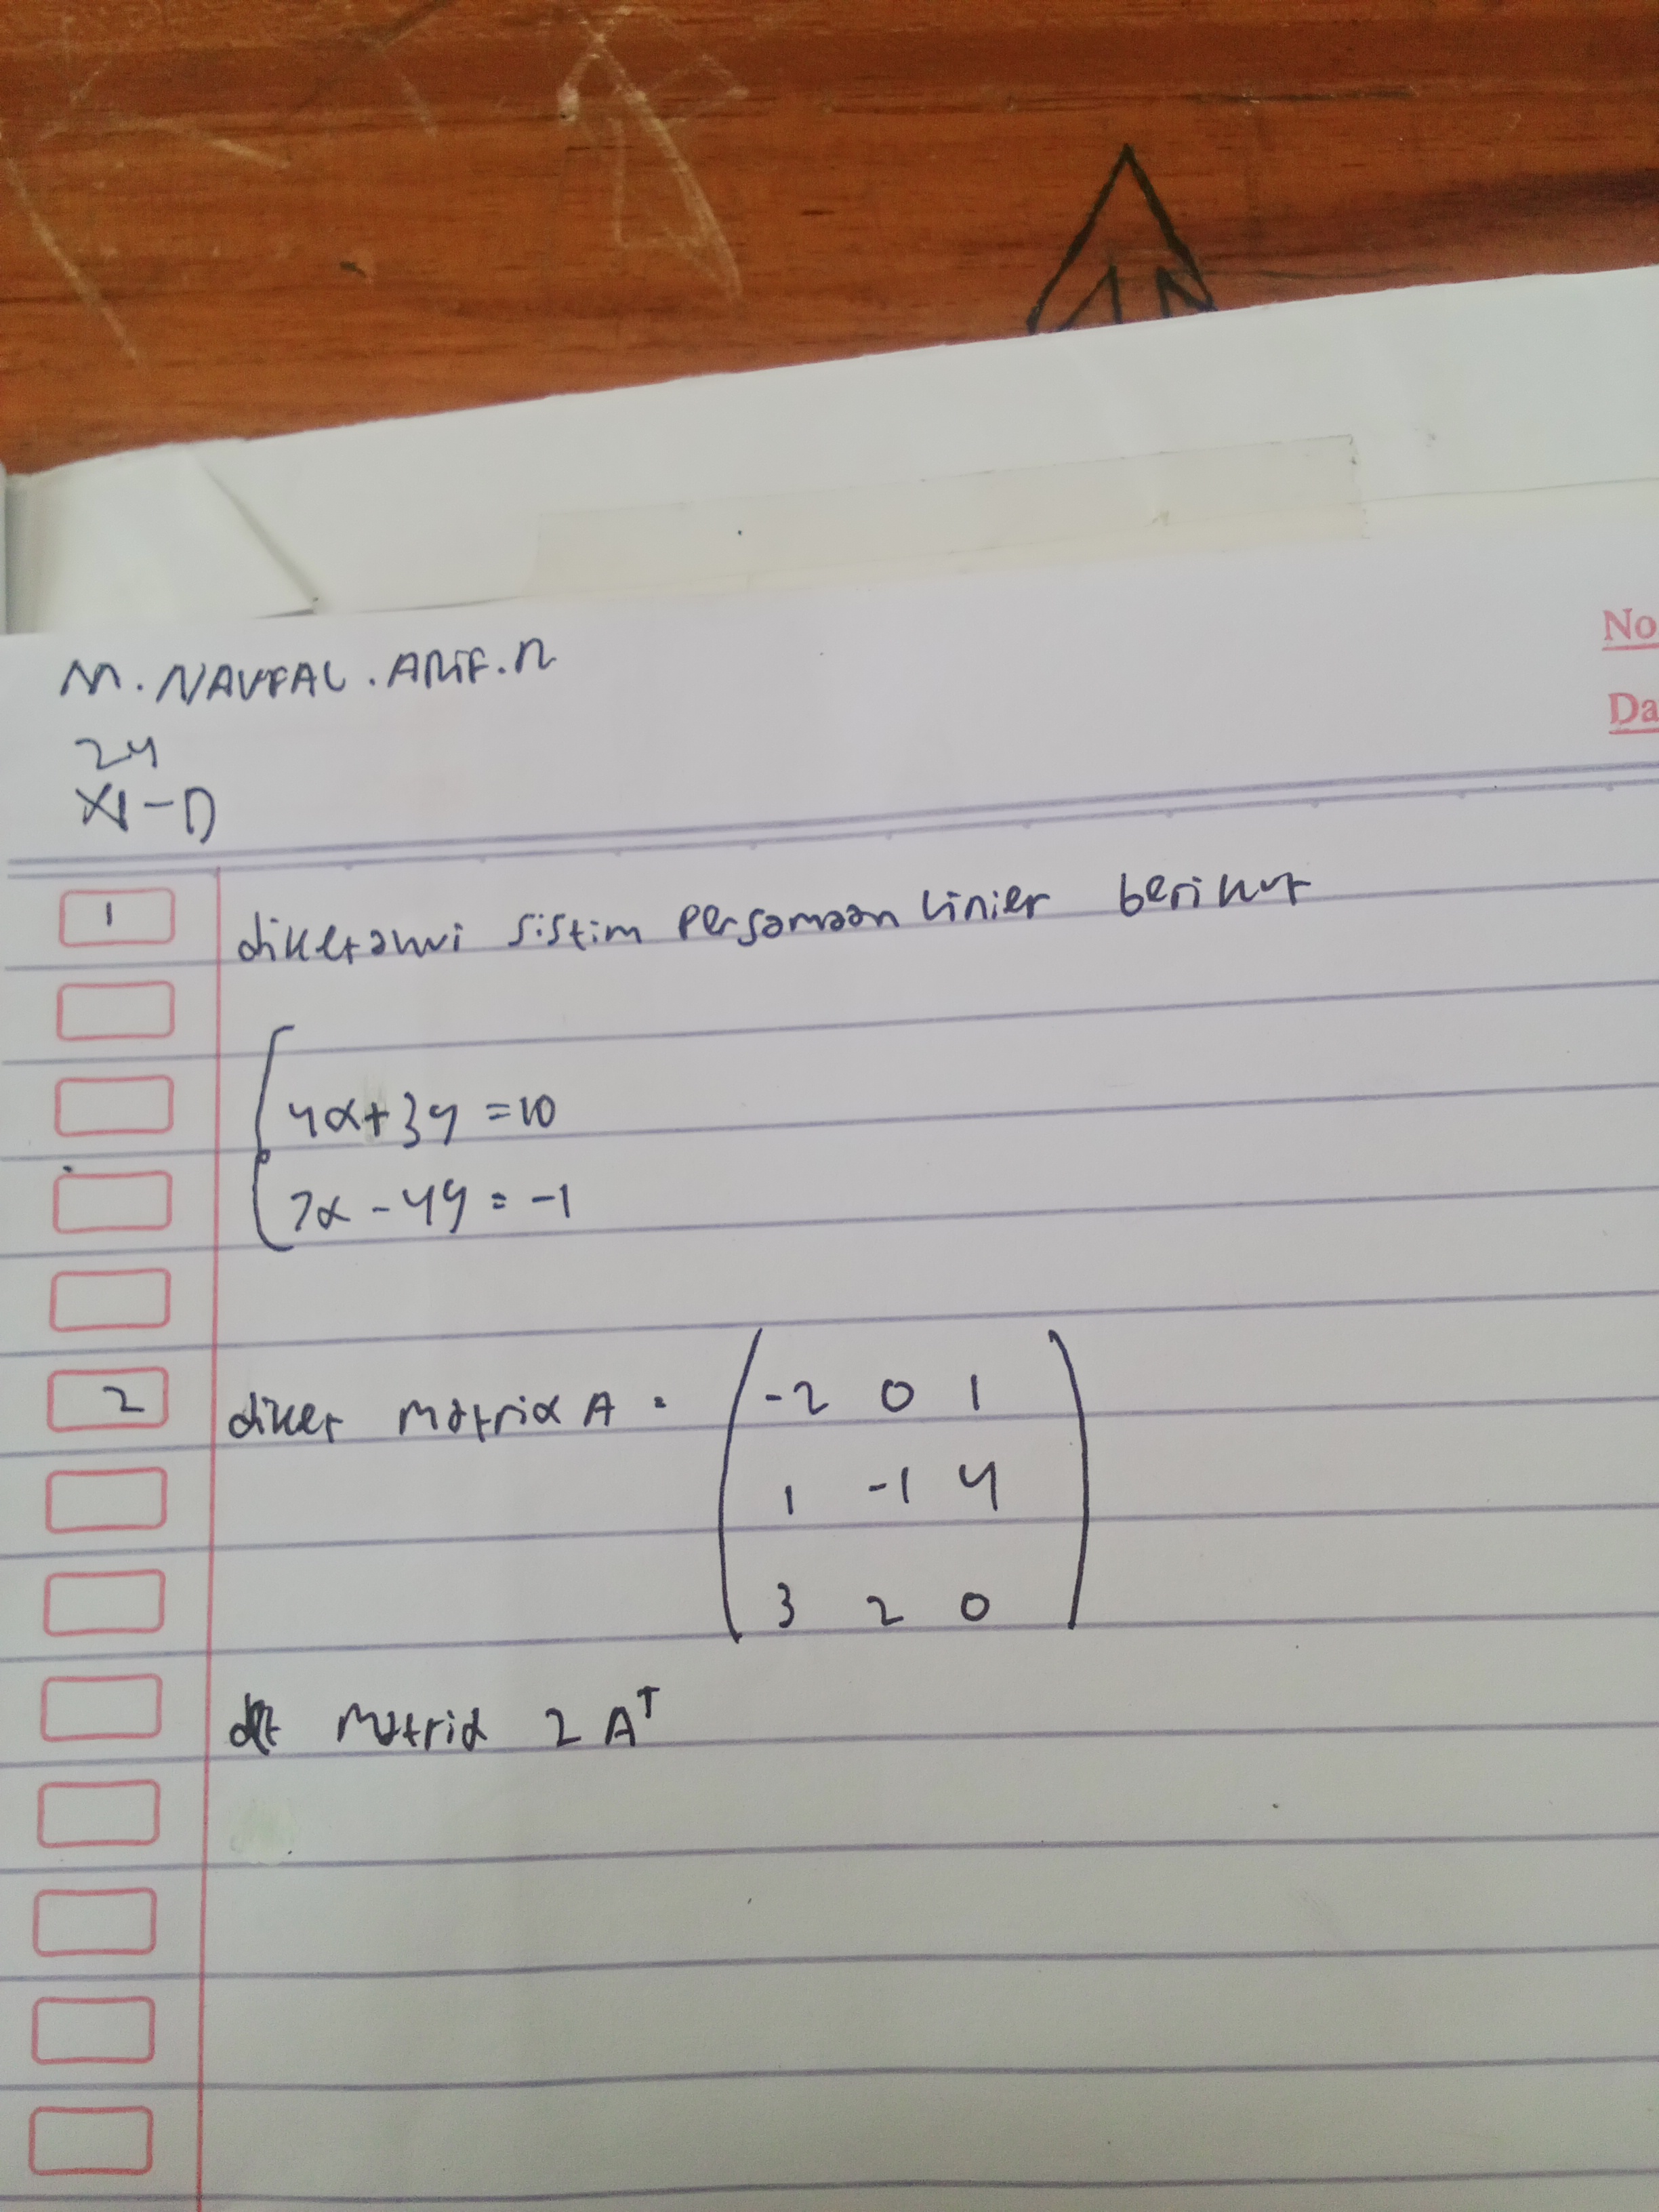 M. NAUFAL. ARIF. R
No
24
Da
XI-D
1 diketahui sistim persamaan linier berikut
4x+3y = 10
7x - 4y = -1
2 diket matrix A = -2 0 1
1 -1 4
3 2 0
matrix 2 A^T